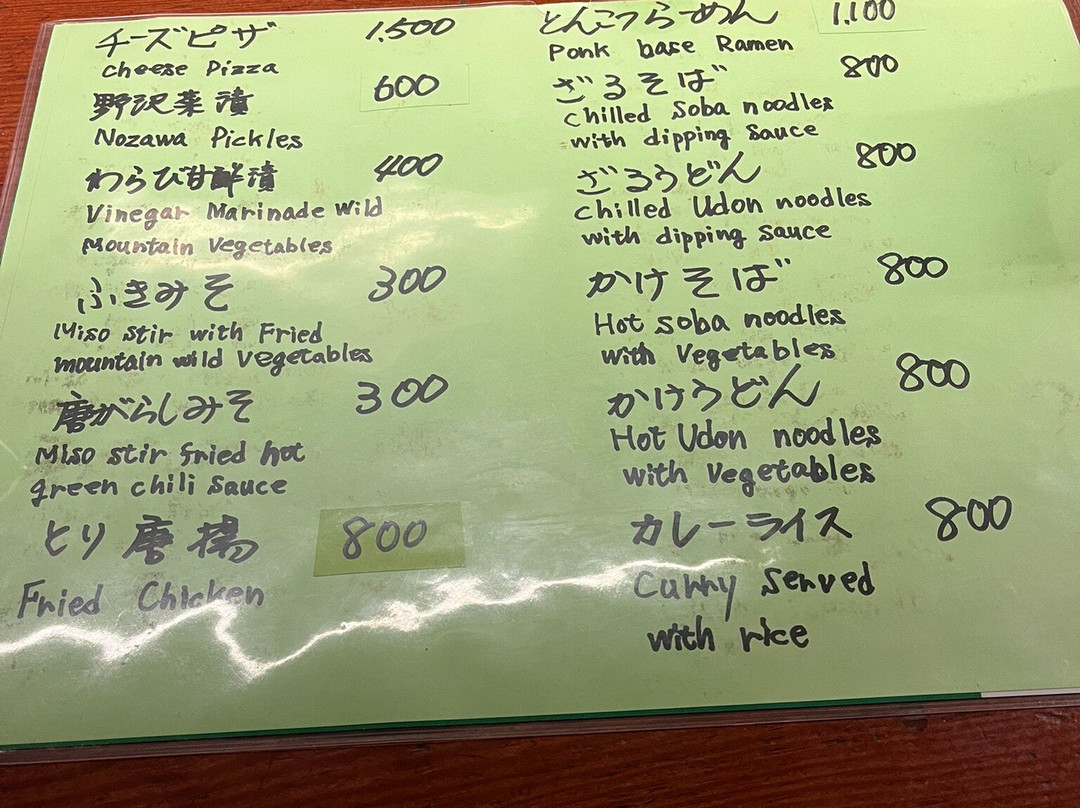 チーズピザ 1,500
cheese Pizza
野沢菜漬 600
Nozawa Pickles
わらび甘酢漬 400
Vinegar Marinade Wild
Mountain Vegetables
ふきみそ 300
Miso stir with Fried
mountain wild Vegetables
唐がらしみそ 300
Miso stir fried hot
green chili Sauce
とり唐揚 800
Fried Chicken
とんこつらーめん 1,100
Ponk base Ramen
ざるそば 800
chilled Soba noodles
with dipping Sauce
ざるうどん 800
chilled Udon noodles
with dipping sauce
かけそば 800
Hot soba noodles
with Vegetables
かけうどん 800
Hot Udon noodles
with Vegetables
カレーライス 800
Curry Served
with rice